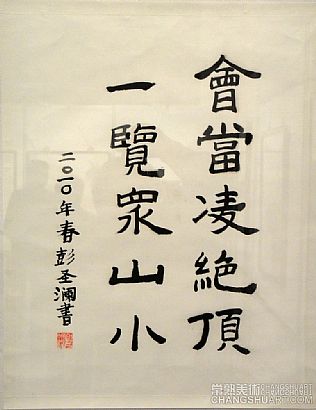 會當凌絶頂
一覽眾山小
二〇一〇年春彭圣澜書
常熟美術
CHANGSHUART.COM